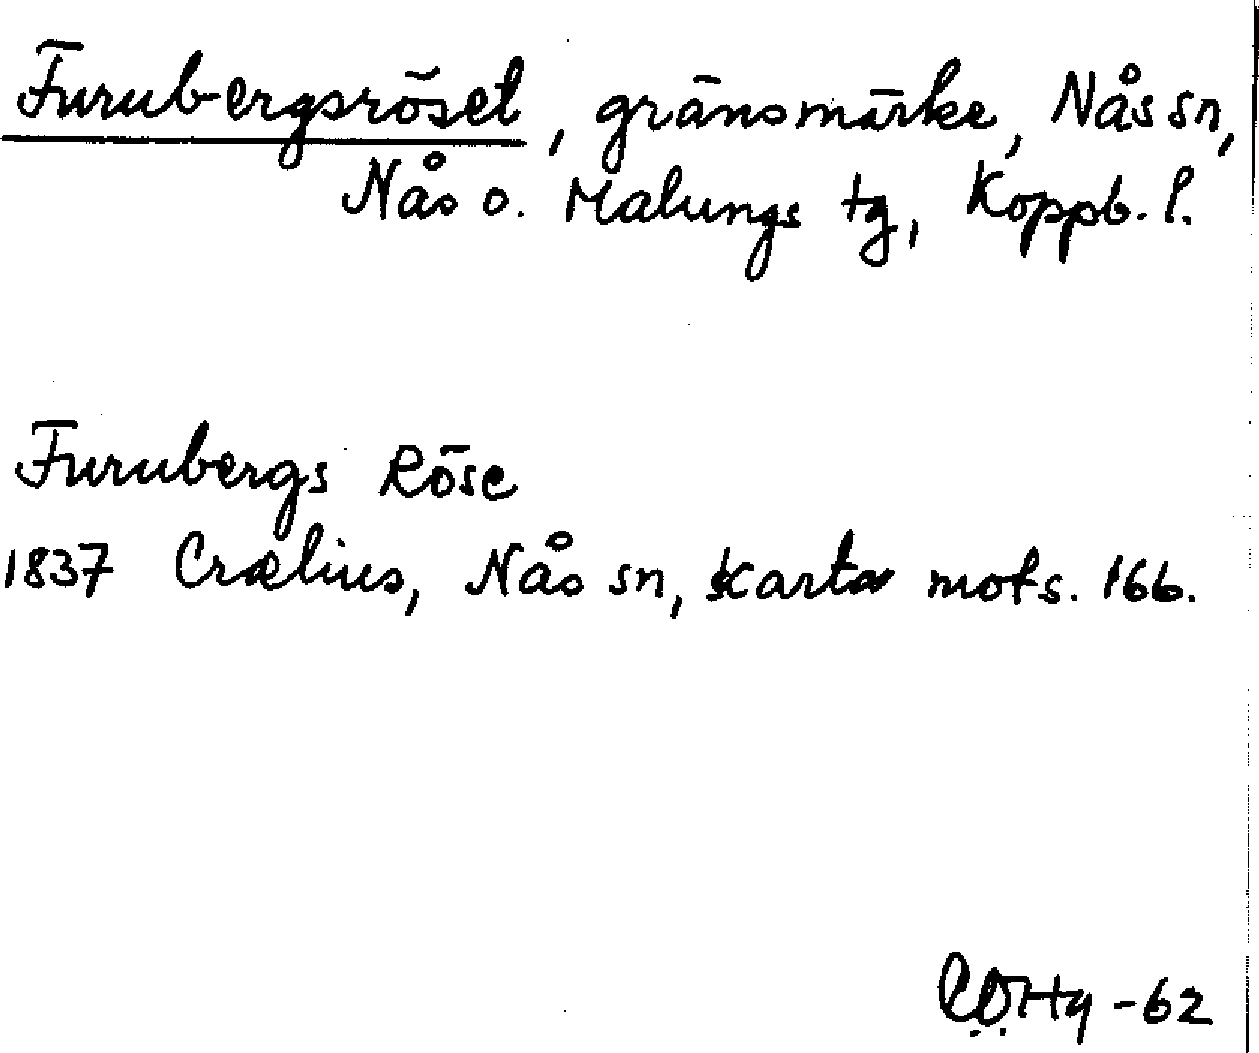 Furubergsröset, gränsmärke, Nås sn,
Nås o. Malungs tg, Koppb. l.
Furubergs Röse
1837 Crælius, Nås sn, Karta mots. 166.
-62